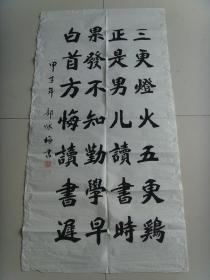 三更燈火五更鷄
正是男儿讀書時
果發不知勤學早
白首方悔讀書遲
甲
年
書